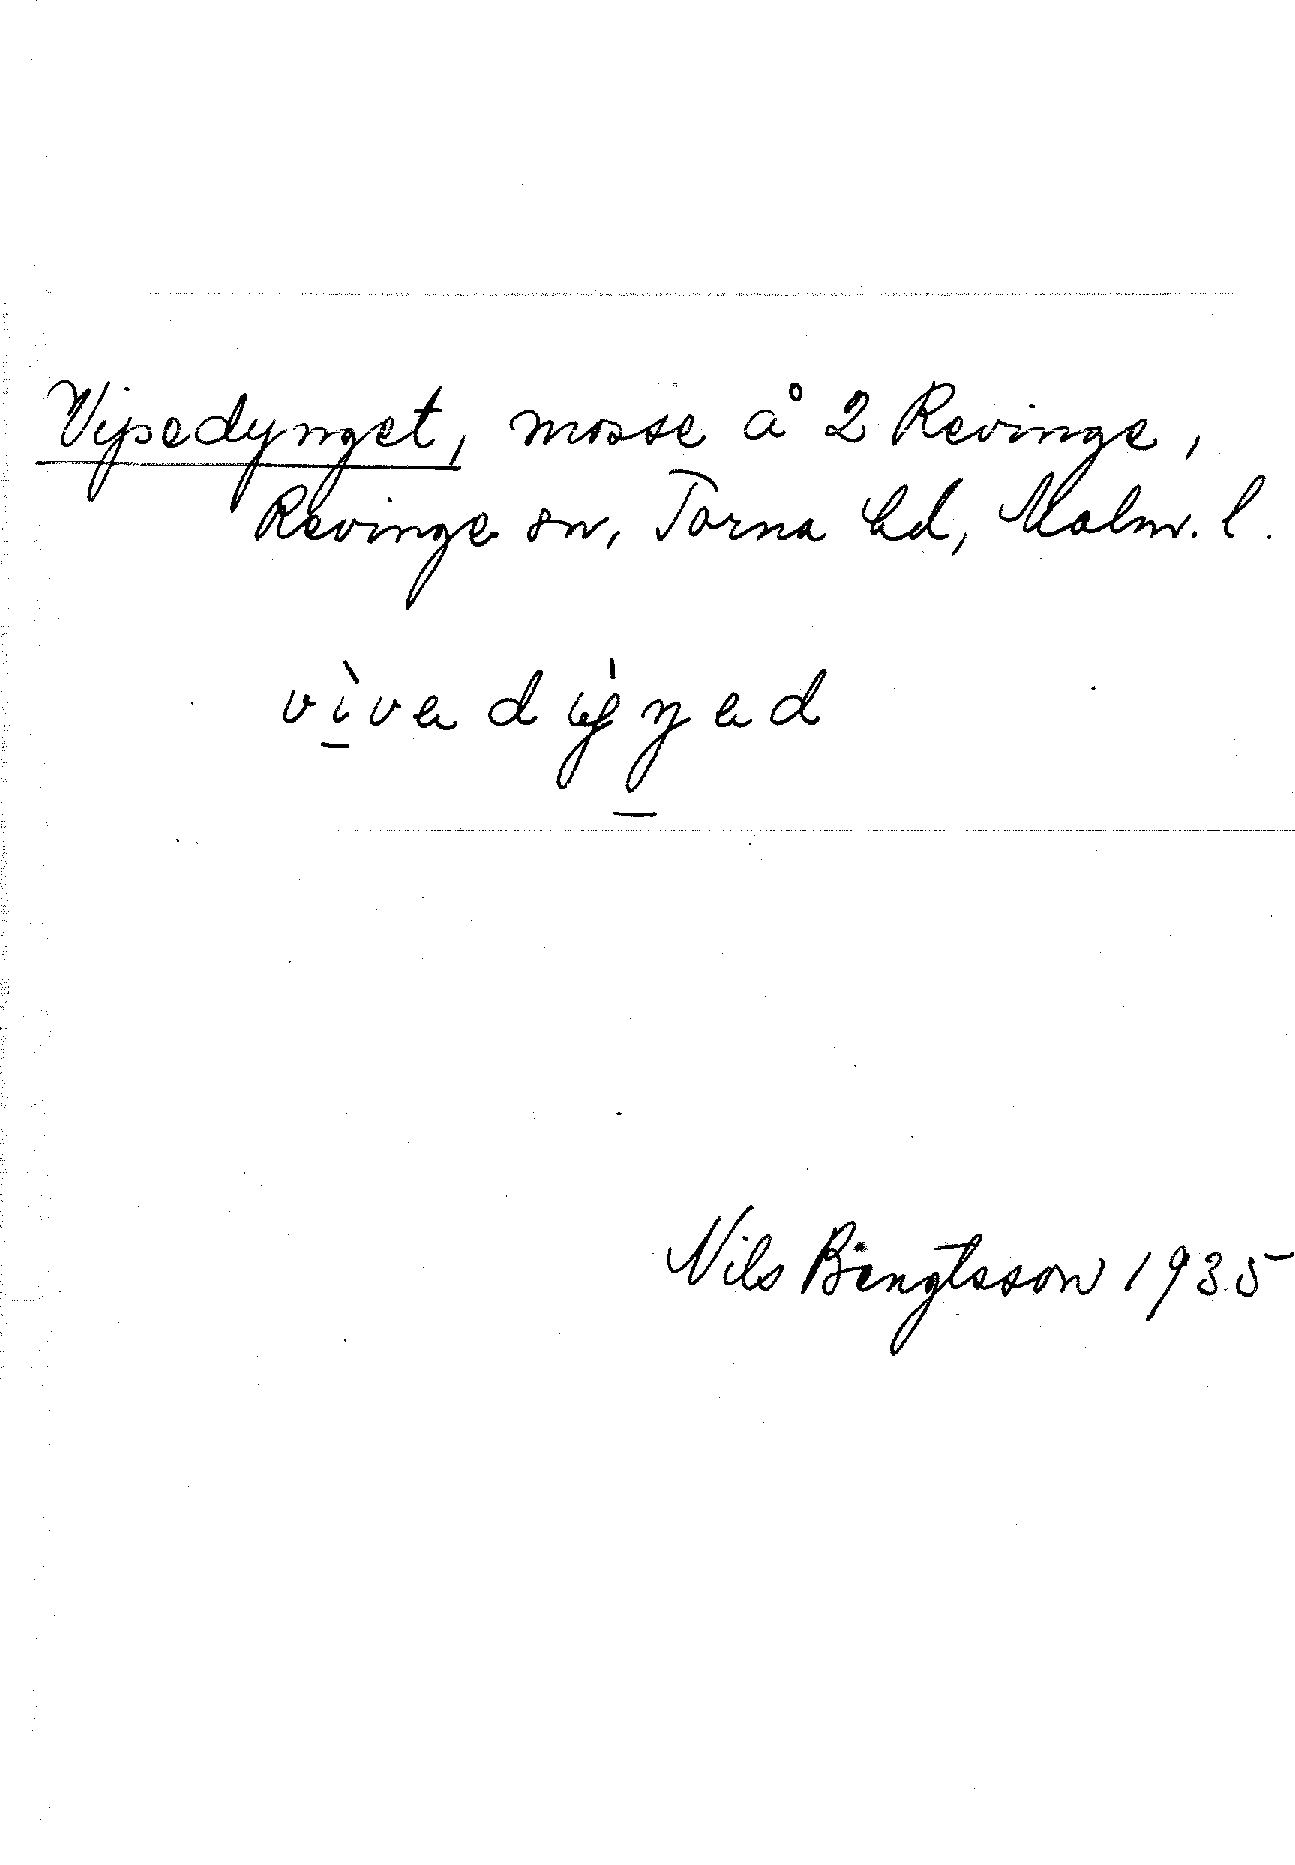 Vipedynget, mosse å 2 Revinge,
Revinge sn, Torna hd, Malm. l.
Nils Bengtsson 1935